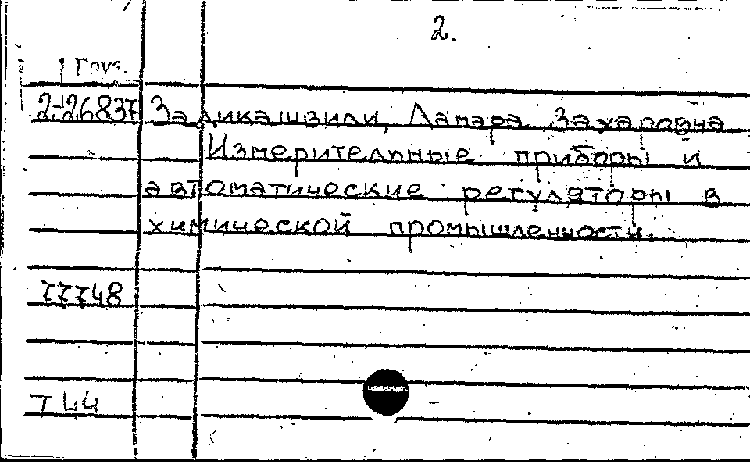 2.
Груз.
2-26837 Заликашвили, Ламара Захаровна
Измерительные приборы и
автоматические регуляторы в
химической промышленности.
77748
Т 44